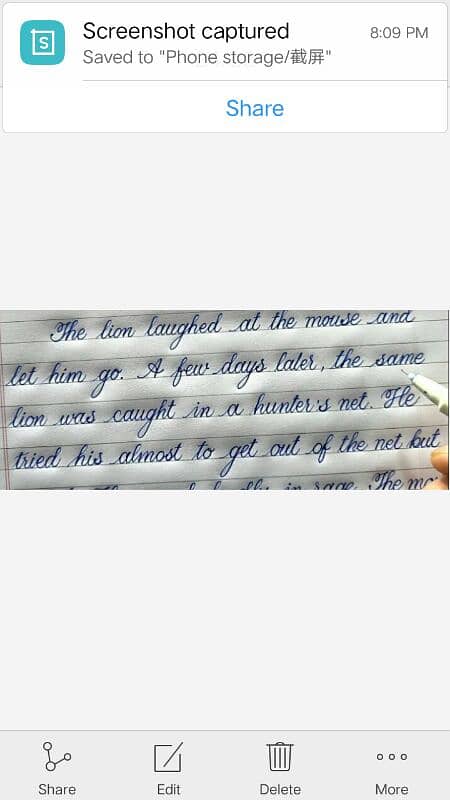 Screenshot captured
8:09 PM
Saved to "Phone storage/截屏"
Share
The lion laughed at the mouse and
let him go. A few days later, the same
lion was caught in a hunter's net. He
tried his almost to get out of the net but
in The
Share
Edit
Delete
More